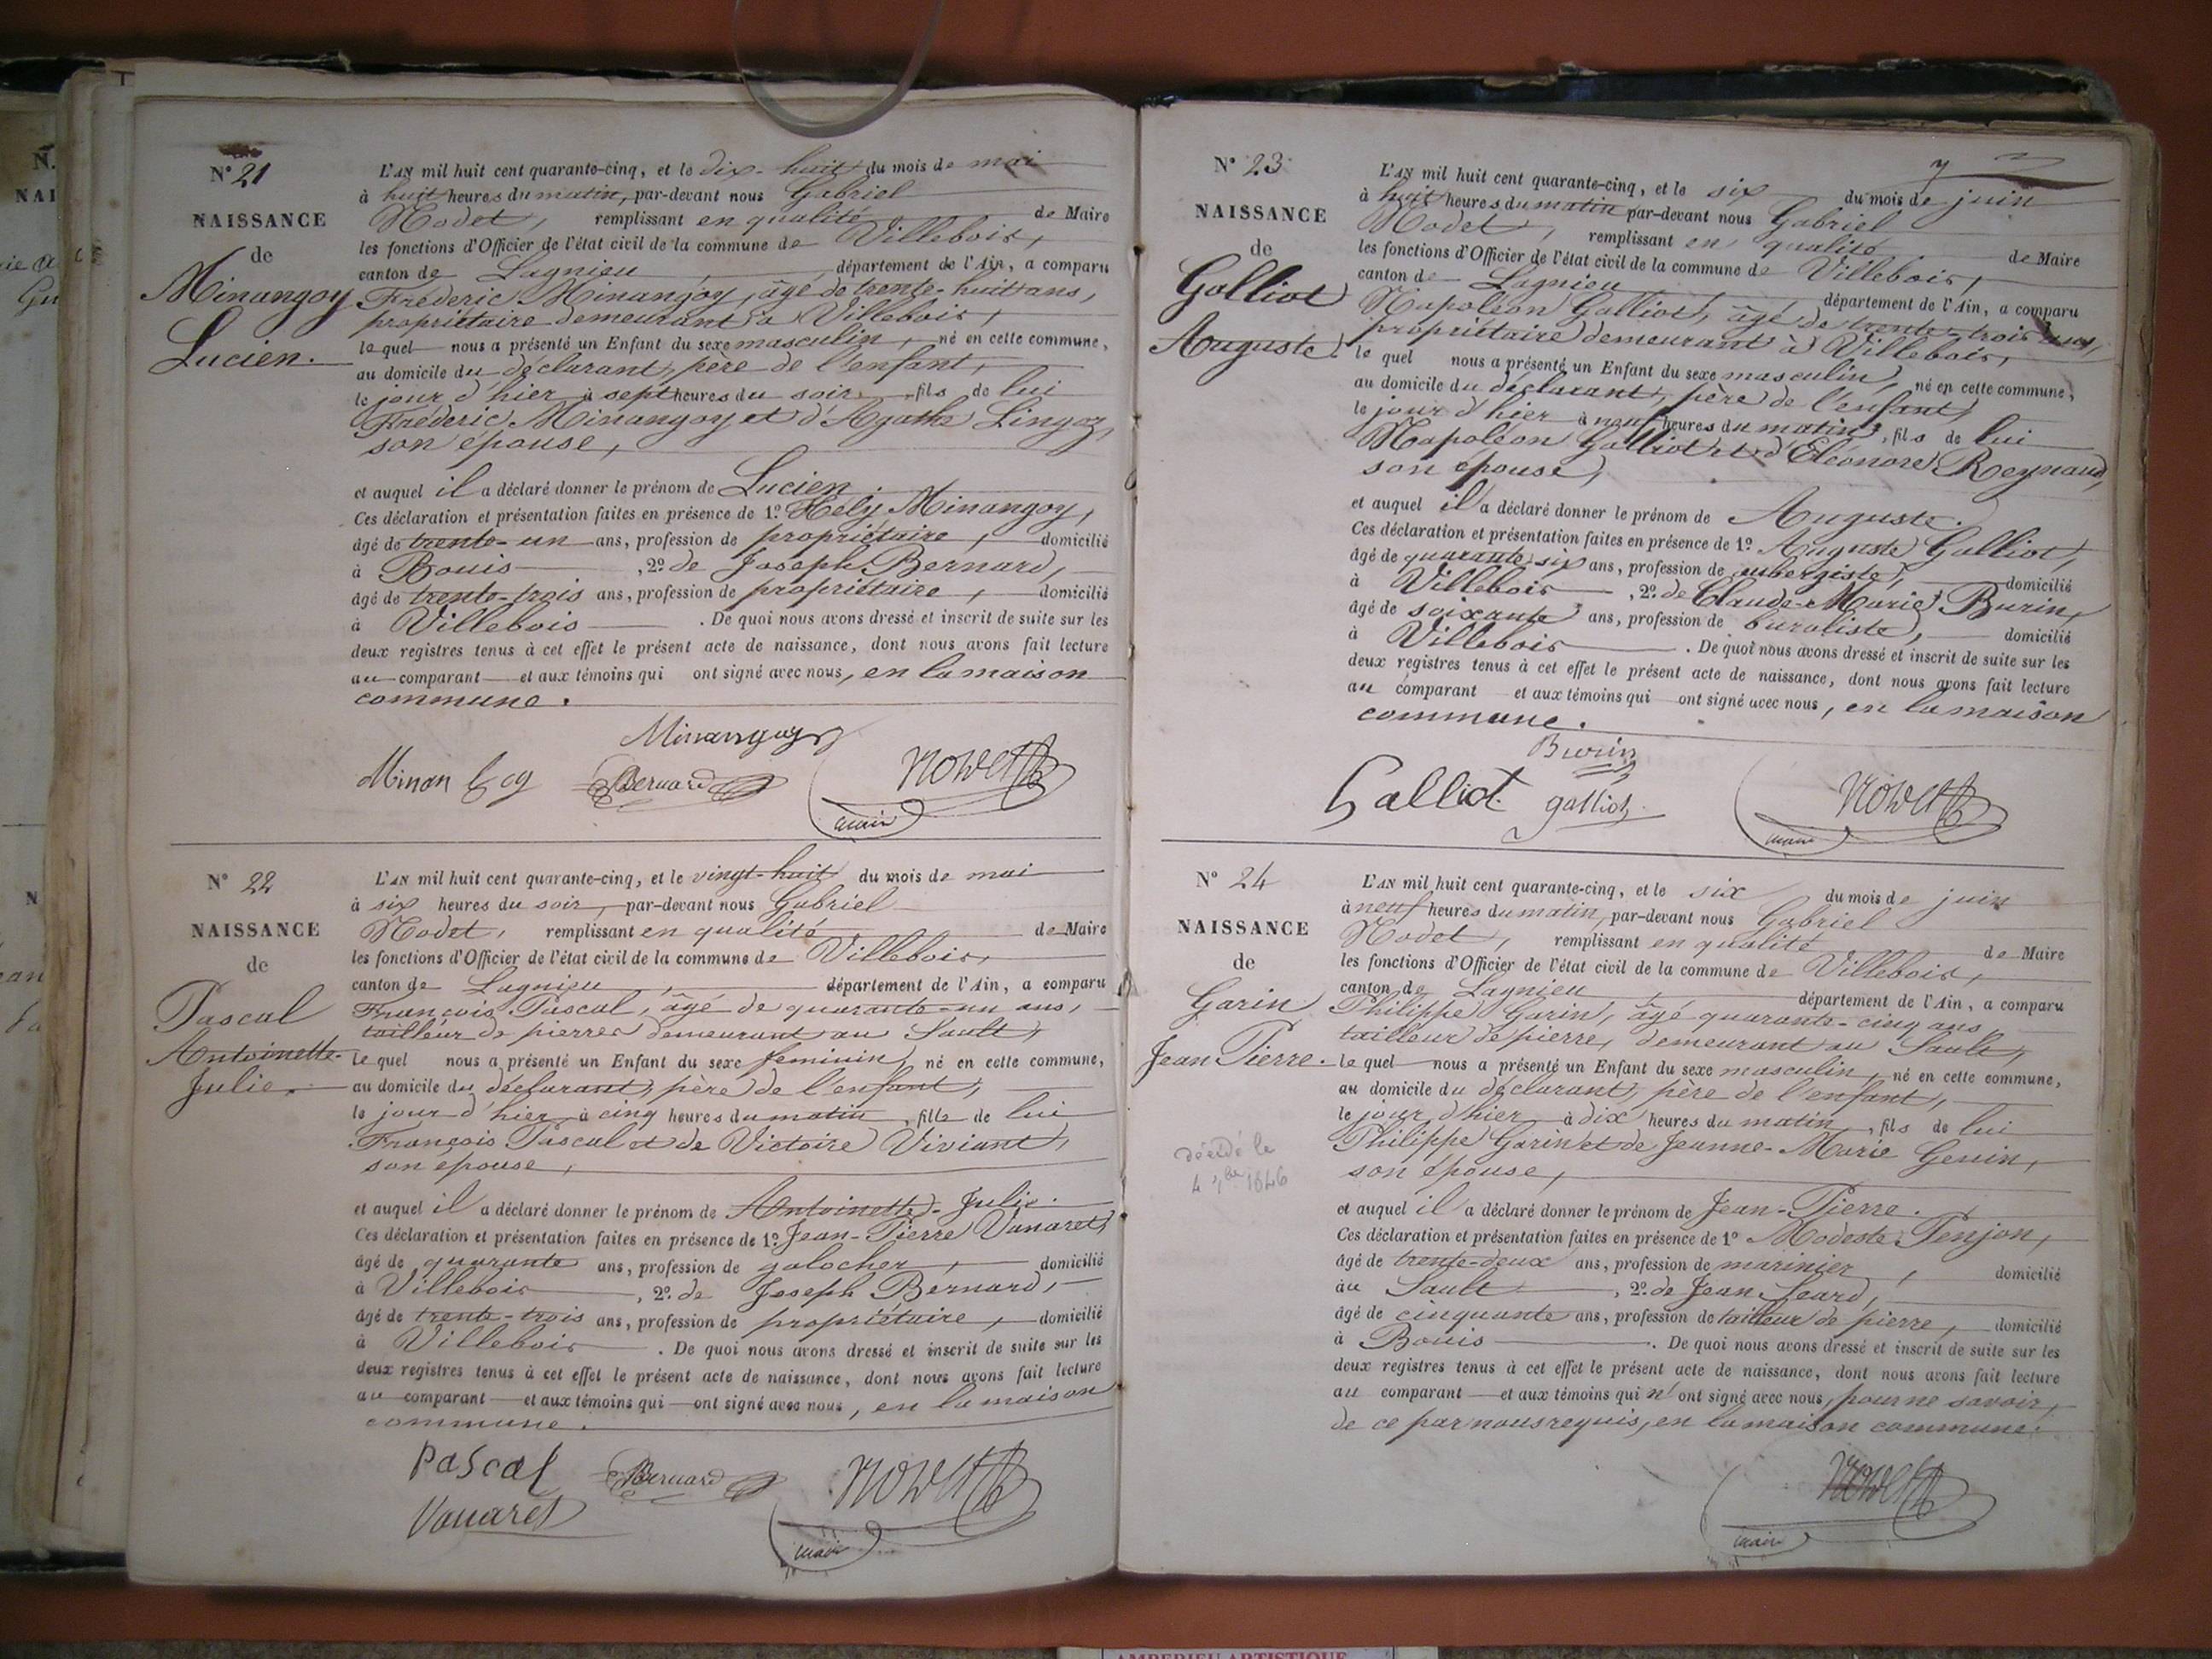 N° 21
NAISSANCE
de
Minangoy
Lucien.
L'AN mil huit cent quarante-cinq, et le dix-huit du mois de mai
à huit heures du matin, par-devant nous Gabriel
Nodet, remplissant en qualité de Maire
les fonctions d'Officier de l'état civil de la commune de Villebois,
canton de Lagnieu, département de l'Ain, a comparu
Fréderic Minangoy, âgé de trente-huit ans,
propriétaire demeurant à Villebois,
lequel nous a présenté un Enfant du sexe masculin, né en cette commune,
au domicile du déclarant, père de l'enfant,
le jour d'hier à sept heures du soir, fils de lui
Fréderic Minangoy et d'Agathe Lingoz,
son épouse,
et auquel il a déclaré donner le prénom de Lucien.
Ces déclaration et présentation faites en présence de 1° Hély Minangoy,
âgé de trente-un ans, profession de propriétaire, domicilié
à Bouis, 2° de Joseph Bernard,
âgé de trente-trois ans, profession de propriétaire, domicilié
à Villebois. De quoi nous avons dressé et inscrit de suite sur les
deux registres tenus à cet effet le présent acte de naissance, dont nous avons fait lecture
au comparant et aux témoins qui ont signé avec nous, en la maison
commune.
Minangoy
Bernard
maire
N° 22
NAISSANCE
de
Pascal
Antoinette-
Julie.
L'AN mil huit cent quarante-cinq, et le vingt-huit du mois de mai
à six heures du soir, par-devant nous Gabriel
Nodet, remplissant en qualité de Maire
les fonctions d'Officier de l'état civil de la commune de Villebois,
canton de Lagnieu, département de l'Ain, a comparu
François Pascal, âgé de quarante-un ans,
tailleur de pierres demeurant au Sault,
lequel nous a présenté un Enfant du sexe féminin, né en cette commune,
au domicile du déclarant, père de l'enfant,
le jour d'hier à cinq heures du matin, fille de lui
François Pascal et de Victoire Viviant,
son épouse,
et auquel il a déclaré donner le prénom de Antoinette-Julie.
Ces déclaration et présentation faites en présence de 1° Jean-Pierre Vanaret,
âgé de quarante ans, profession de galocher, domicilié
à Villebois, 2° de Joseph Bernard,
âgé de trente-trois ans, profession de propriétaire, domicilié
à Villebois. De quoi nous avons dressé et inscrit de suite sur les
deux registres tenus à cet effet le présent acte de naissance, dont nous avons fait lecture
au comparant et aux témoins qui ont signé avec nous, en la maison
commune.
Pascal Bernard
maire
N° 23
NAISSANCE
de
Galliot
Auguste.
7
L'AN mil huit cent quarante-cinq, et le six du mois de juin
à huit heures du matin par-devant nous Gabriel
Nodet, remplissant en qualité de Maire
les fonctions d'Officier de l'état civil de la commune de Villebois,
canton de Lagnieu, département de l'Ain, a comparu
Napoléon Galliot, âgé de trente-trois ans,
propriétaire demeurant à Villebois,
lequel nous a présenté un Enfant du sexe masculin, né en cette commune,
au domicile du déclarant, père de l'enfant,
le jour d'hier à neuf heures du matin, fils de lui
Napoléon Galliot et d'Eléonore Reynaud,
son épouse,
et auquel il a déclaré donner le prénom de Auguste.
Ces déclaration et présentation faites en présence de 1° Auguste Galliot,
âgé de quarante-six ans, profession de aubergiste, domicilié
à Villebois, 2° de Claude-Marie Burin,
âgé de soixante ans, profession de buraliste, domicilié
à Villebois. De quoi nous avons dressé et inscrit de suite sur les
deux registres tenus à cet effet le présent acte de naissance, dont nous avons fait lecture
au comparant et aux témoins qui ont signé avec nous, en la maison
commune.
Burin
Galliot galliot
maire
N° 24
NAISSANCE
de
Garin
Jean Pierre.
décédé le
4 1846
L'AN mil huit cent quarante-cinq, et le six du mois de juin
à neuf heures du matin, par-devant nous Gabriel
Nodet, remplissant en qualité de Maire
les fonctions d'Officier de l'état civil de la commune de Villebois,
canton de Lagnieu, département de l'Ain, a comparu
Philippe Garin, âgé quarante-cinq ans,
tailleur de pierre, demeurant au Sault,
lequel nous a présenté un Enfant du sexe masculin, né en cette commune,
au domicile du déclarant, père de l'enfant,
le jour d'hier à dix heures du matin, fils de lui
Philippe Garin et de Jeanne-Marie Genin,
son épouse,
et auquel il a déclaré donner le prénom de Jean-Pierre.
Ces déclaration et présentation faites en présence de 1° Modeste Penjon,
âgé de trente-deux ans, profession de marinier, domicilié
au Sault, 2° de Jean Seard,
âgé de cinquante ans, profession de tailleur de pierre, domicilié
à Bouis. De quoi nous avons dressé et inscrit de suite sur les
deux registres tenus à cet effet le présent acte de naissance, dont nous avons fait lecture
au comparant et aux témoins qui n'ont signé avec nous, pour ne savoir,
de ce par nous requis, en la maison commune.
maire
AMBERIEU ARTISTIQUE